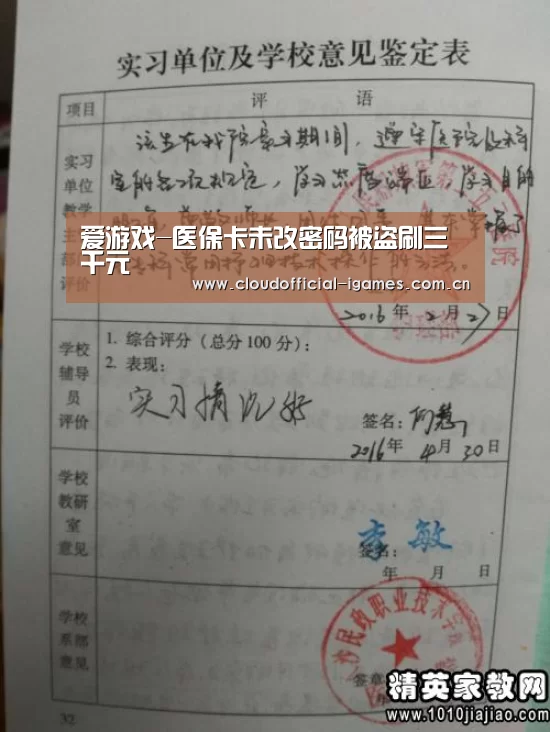 实习单位及学校意见鉴定表
项目 评 语
实习
单位
教学
主
部
评价
该生在我院实习期间,遵守医院及科
室的各项规定,学习态度端正,学习目的
爱游戏-医保卡未改密码被盗刷三
千元
www.cloudofficial-igames.com.cn
2016年 2月27日
学校
辅导
员
评价
1. 综合评分(总分 100 分):
2. 表现:
实习情况好
签名:
2016年 4月 30日
学校
教研
室
意见
签名:李敏
年 月 日
学校
系部
意见
民政职业技术学院
签章
32
精英家教网
www.1010jiajiao.com